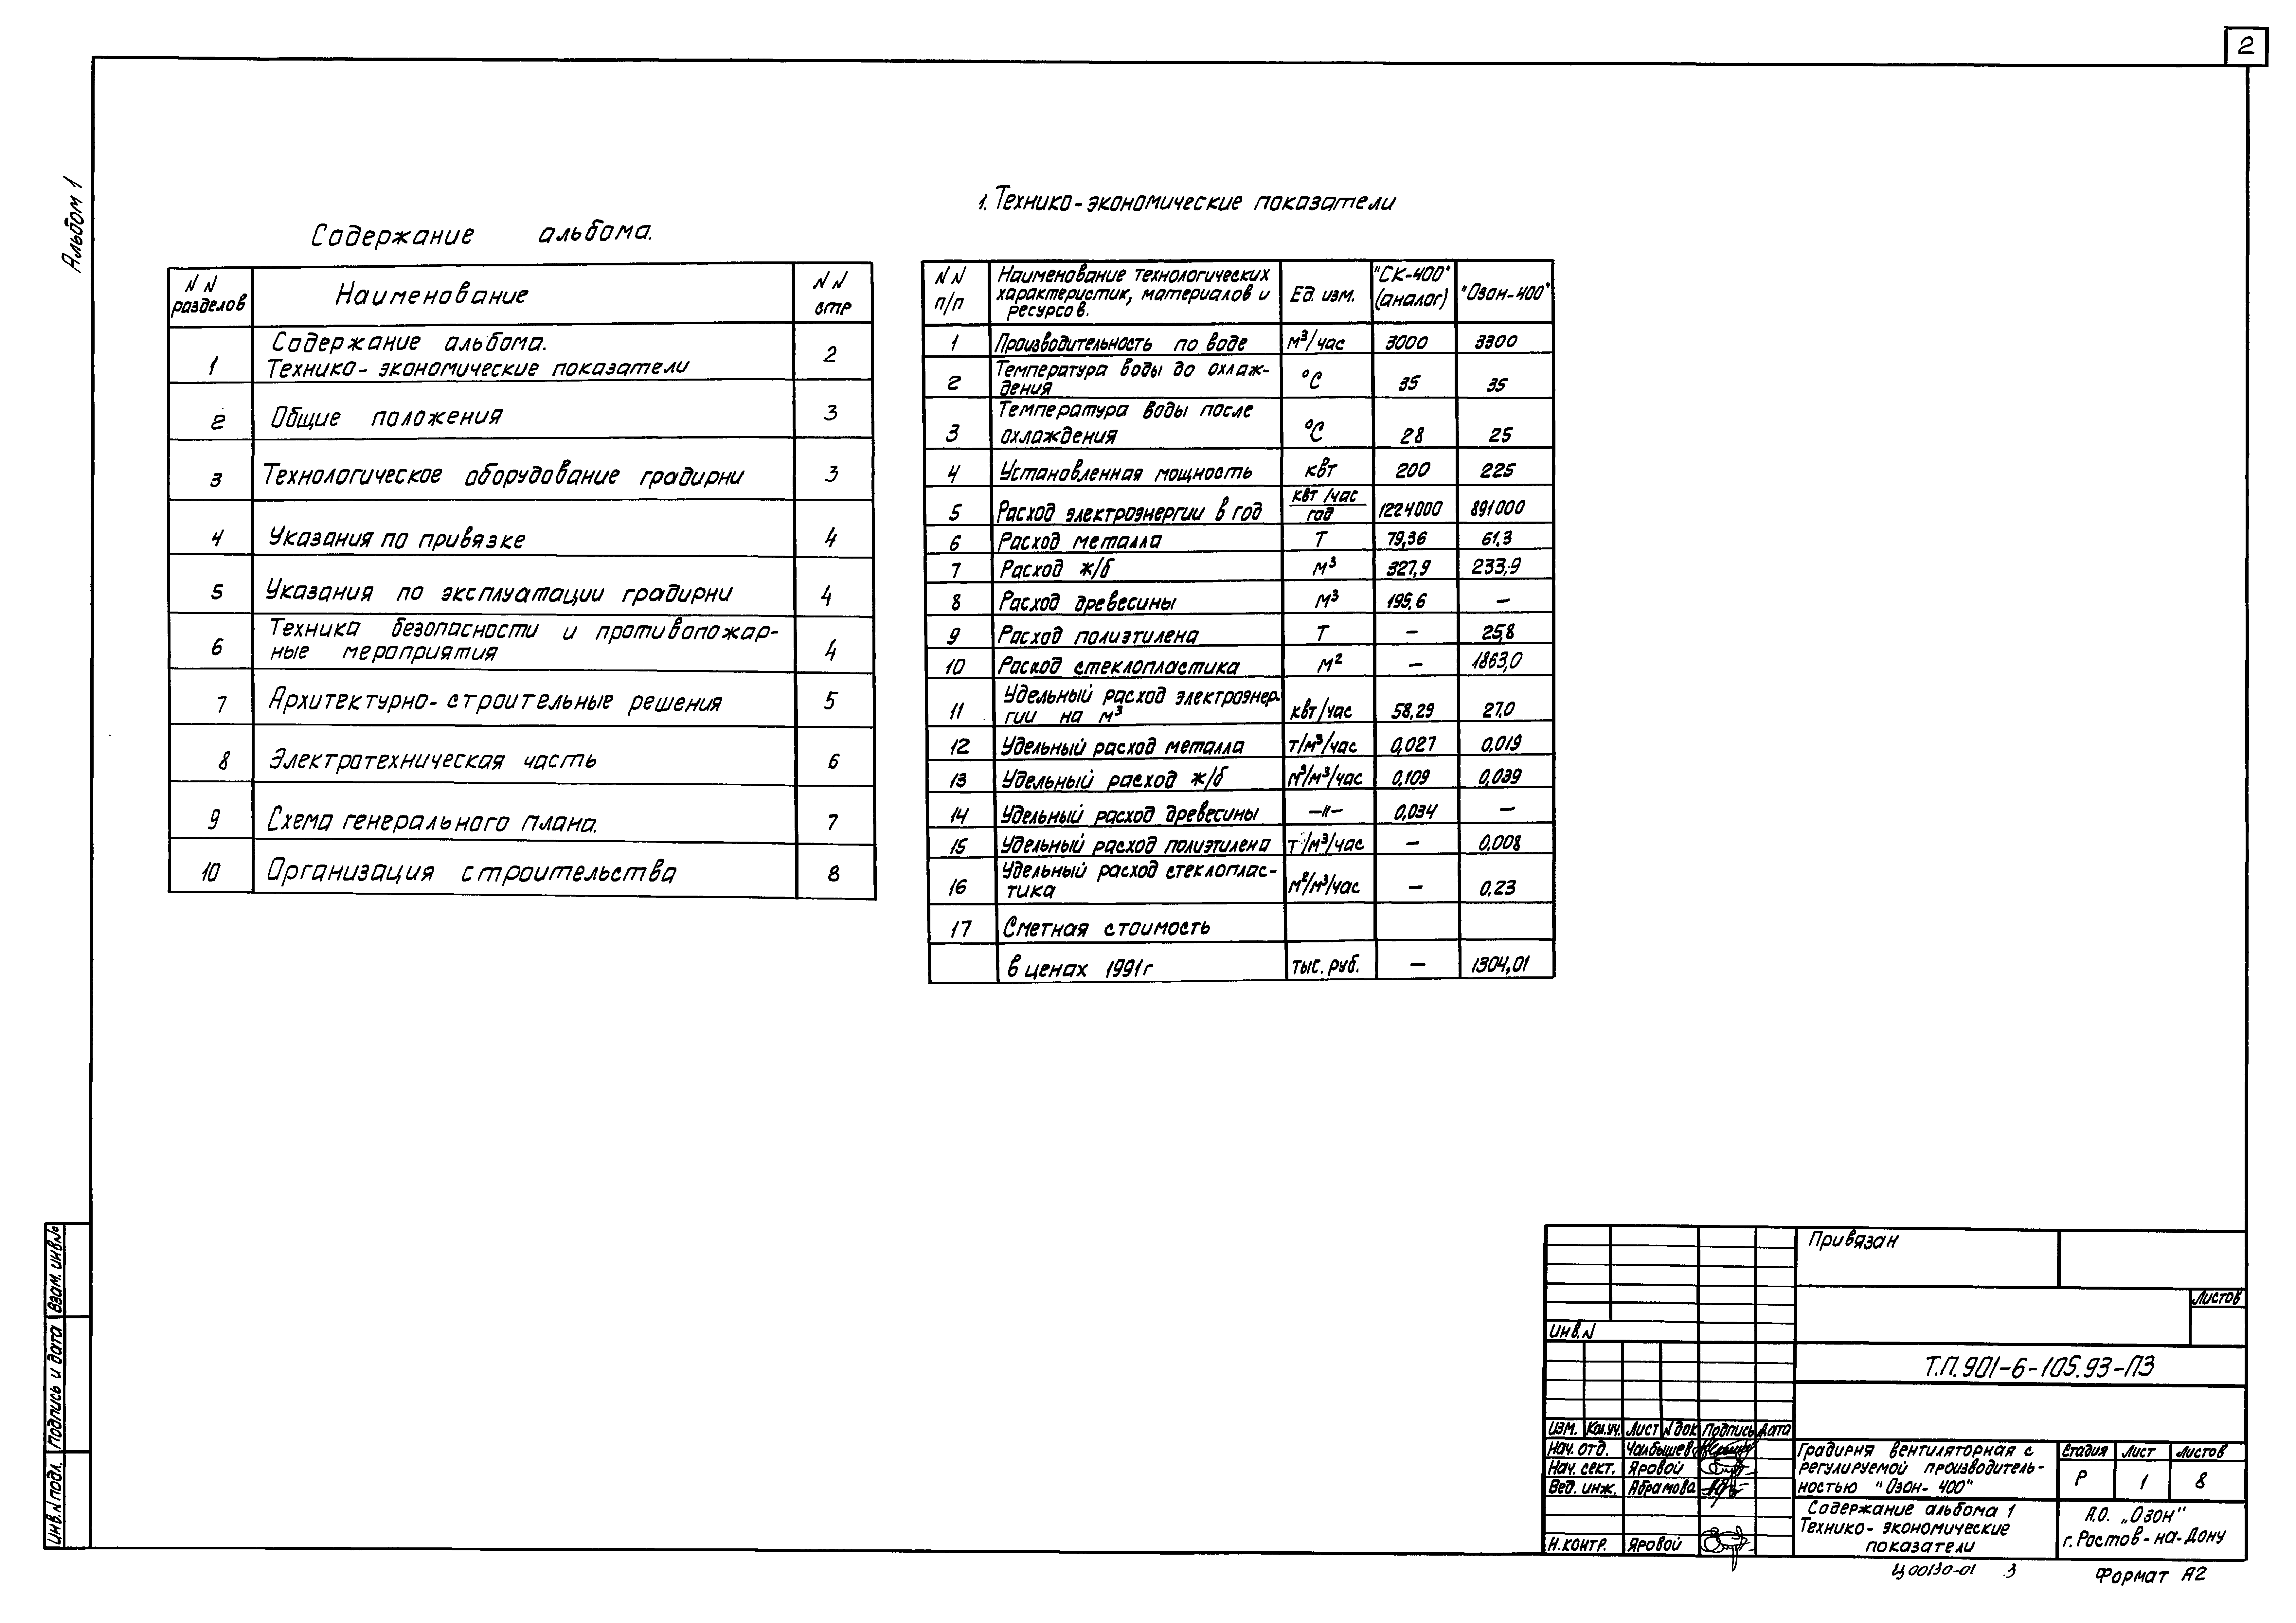 2
Альбом 1
Содержание альбома.
N N разделов | Наименование | N N стр
1 | Содержание альбома.
Технико-экономические показатели | 2
2 | Общие положения | 3
3 | Технологическое оборудование градирни | 3
4 | Указания по привязке | 4
5 | Указания по эксплуатации градирни | 4
6 | Техника безопасности и противопожар-
ные мероприятия | 4
7 | Архитектурно-строительные решения | 5
8 | Электротехническая часть | 6
9 | Схема генерального плана. | 7
10 | Организация строительства | 8
1. Технико-экономические показатели
N N п/п | Наименование технологических
характеристик, материалов и
ресурсов. | Ед. изм. | "СК-400" (аналог) | "Озон-400"
1 | Производительность по воде | м³/час | 3000 | 3300
2 | Температура воды до охлаж-
дения | °С | 35 | 35
3 | Температура воды после
охлаждения | °С | 28 | 25
4 | Установленная мощность | квт | 200 | 225
5 | Расход электроэнергии в год | квт/час
год | 1224000 | 891000
6 | Расход металла | Т | 79,36 | 61,3
7 | Расход ж/б | м³ | 327,9 | 233,9
8 | Расход древесины | м³ | 195,6 | —
9 | Расход полиэтилена | Т | — | 25,8
10 | Расход стеклопластика | м² | — | 1863,0
11 | Удельный расход электроэнер-
гии на м³ | квт/час | 58,29 | 27,0
12 | Удельный расход металла | т/м³/час | 0,027 | 0,019
13 | Удельный расход ж/б | м³/м³/час | 0,109 | 0,039
14 | Удельный расход древесины | —"— | 0,034 | —
15 | Удельный расход полиэтилена | т/м³/час | — | 0,008
16 | Удельный расход стеклоплас-
тика | м²/м³/час | — | 0,23
17 | Сметная стоимость
в ценах 1991г | тыс. руб. | — | 1304,01
Взам. инв.№
Подпись и дата
Инв. N подл.
Привязан
Листов
инв. N
Т.П. 901-6-105.93-ПЗ
Изм. | Кол.уч. | Лист | N док | Подпись | Дата
Нач. отд. | Чалбышев
Нач. сект. | Яровой
Вед. инж. | Абрамова
Н.контр. | Яровой
Градирня вентиляторная с
регулируемой производитель-
ностью "Озон-400"
Стадия | Лист | Листов
Р | 1 | 8
Содержание альбома 1
Технико-экономические
показатели
А.О. „Озон"
г. Ростов-на-Дону
Ц00130-01 3
Формат А2